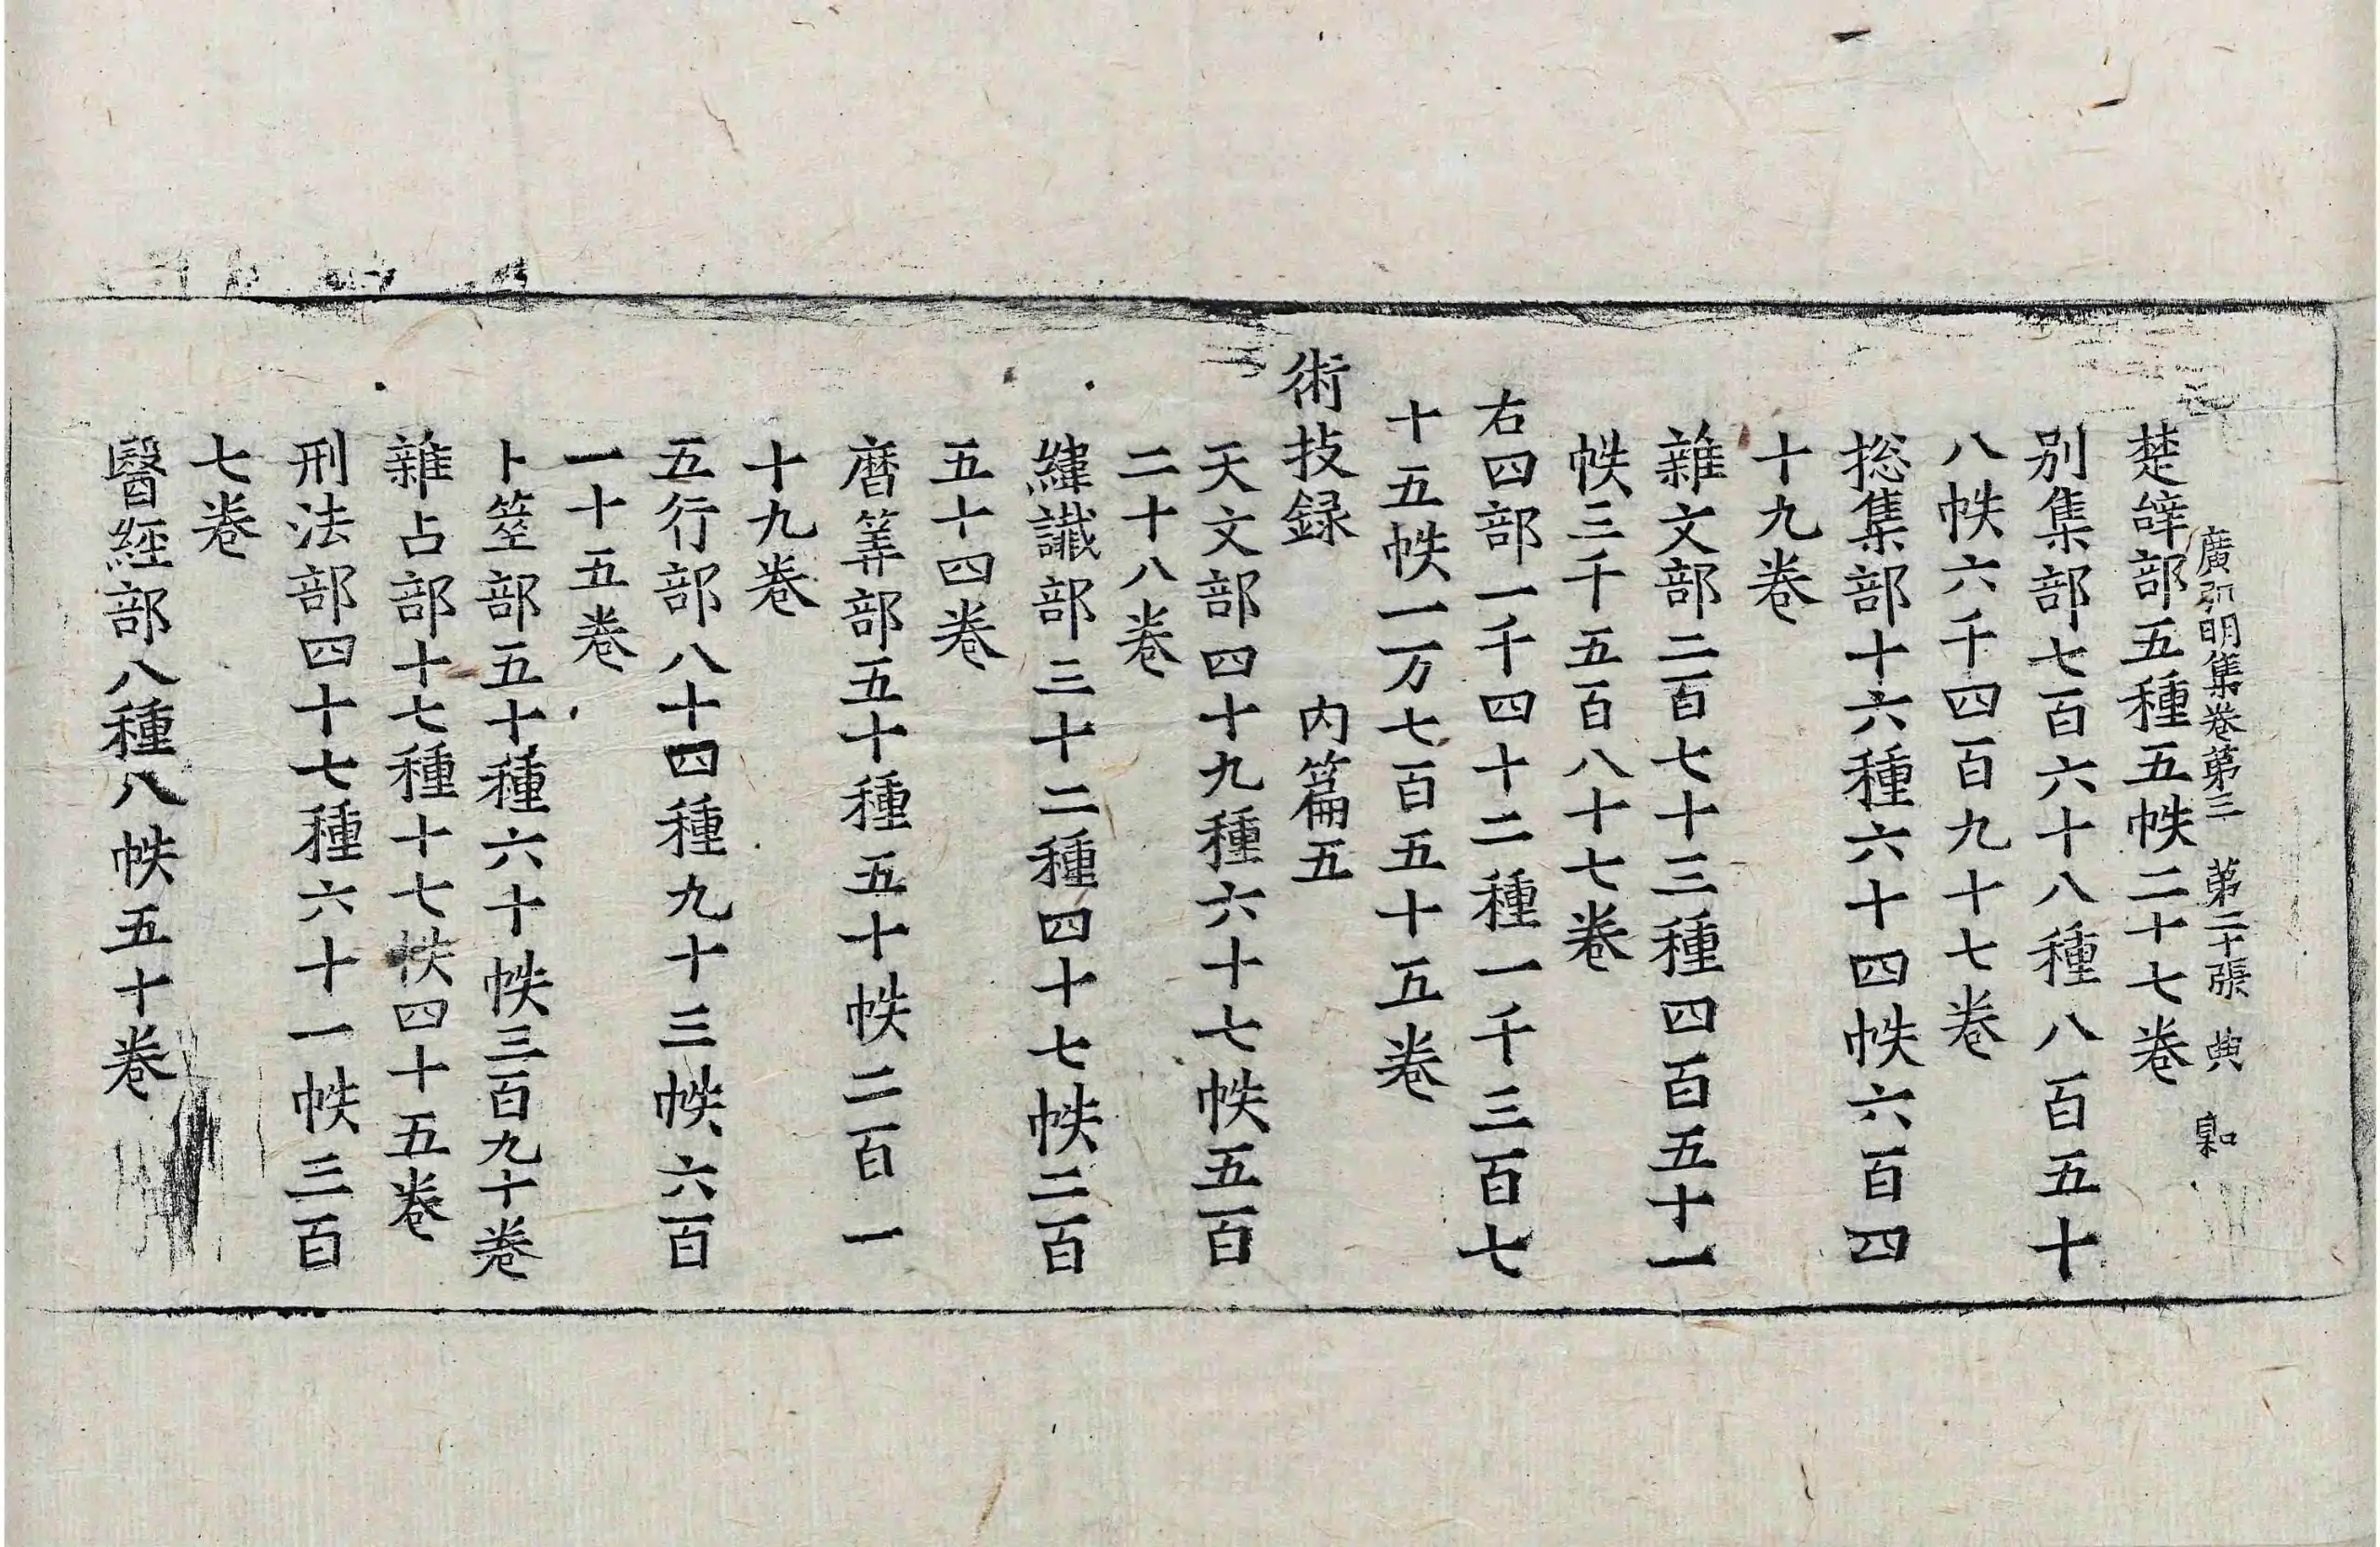 廣弘明集卷第三　第二十張　典
楚辭部五種五帙二十七卷
別集部七百六十八種八百五十
八帙六千四百九十七卷
捴集部十六種六十四帙六百四
十九卷
雜文部二百七十三種四百五十一
帙三千五百八十七卷
右四部一千四十二種一千三百七
十五帙一万七百五十五卷
術技録　　内篇五
天文部四十九種六十七帙五百
二十八卷
緯讖部三十二種四十七帙二百
五十四卷
曆筭部五十種五十帙二百一
十九卷
五行部八十四種九十三帙六百
一十五卷
卜筮部五十種六十帙三百九十卷
雜占部十七種十七帙四十五卷
刑法部四十七種六十一帙三百
七卷
醫經部八種八帙五十卷